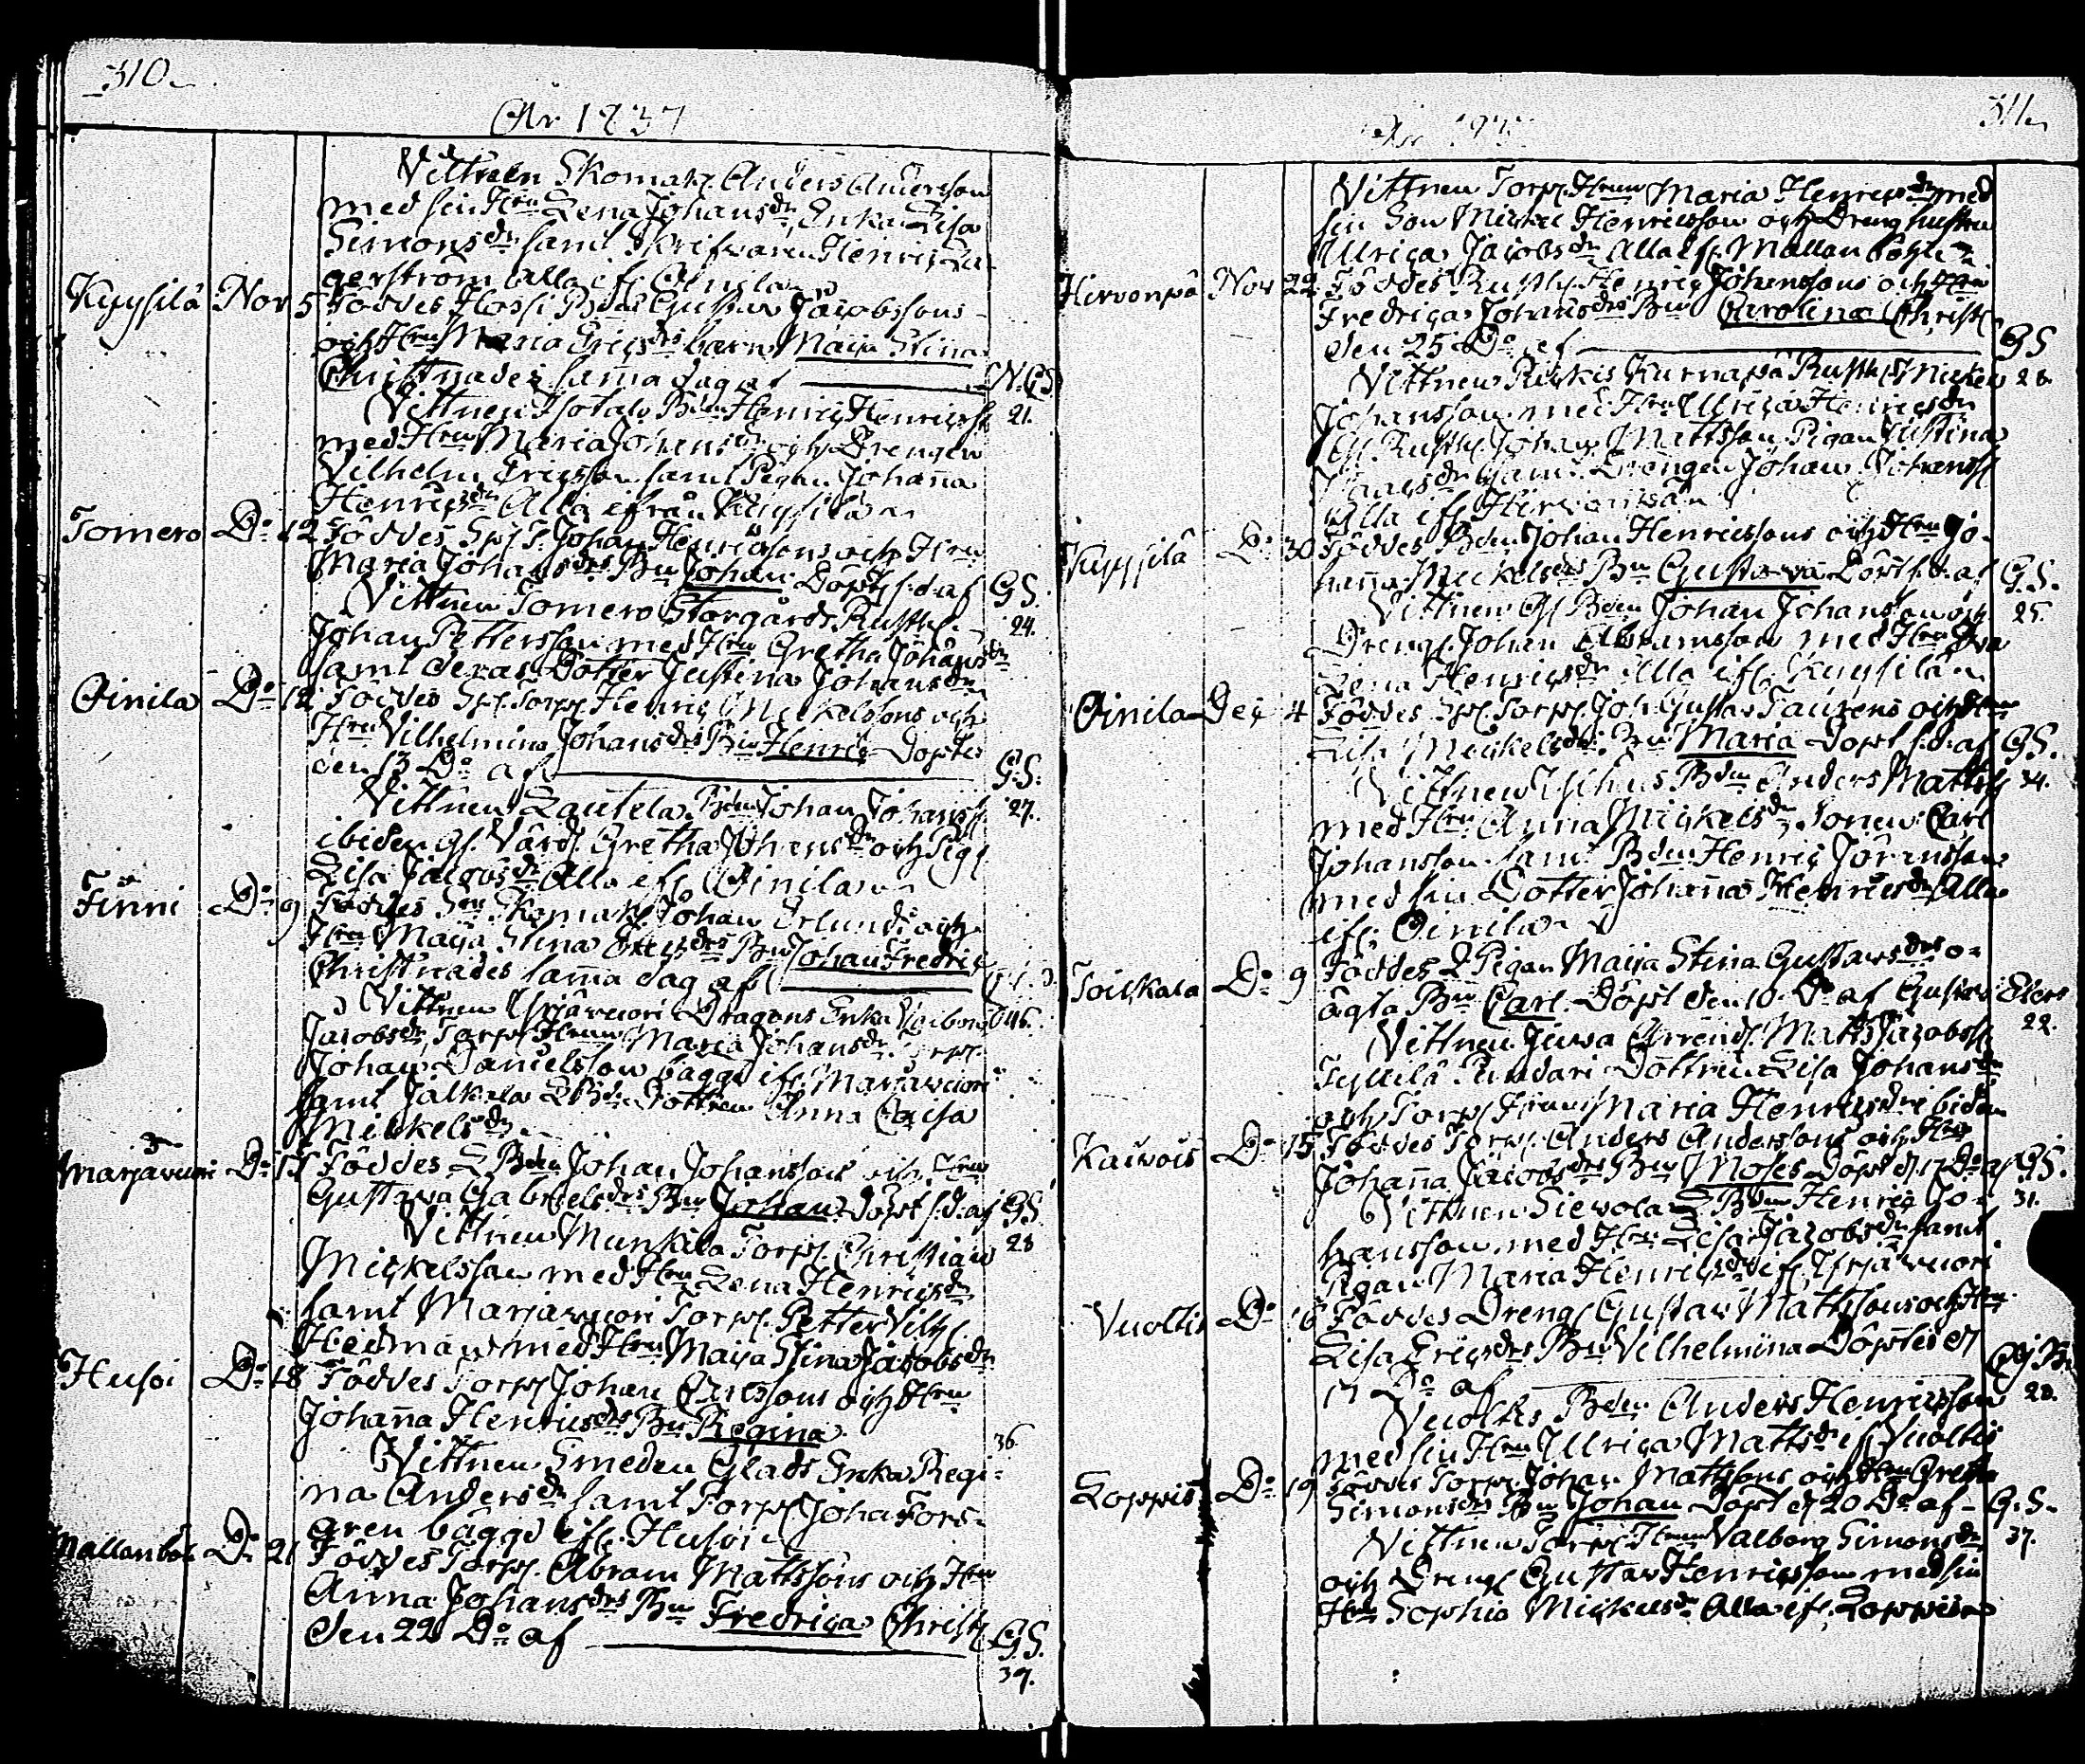 310
År 1837
Vittnen Skomak. Anders Andersson
med sin Hru Lena Johansdr Enkan Lisa
Simonsdr samt Skrifvaren Henric La-
gerström alla ifr. Oinila
Kyysilä Nov 5 Föddes Hossi Bdns Gustav Jacobssons
och Hru Maria Ericsdrs barn Maija Stina
Christnades samma dag af N. G.
Vittnen Isotalo Bden Henric Henricss. 21.
med Hru Maria Johansdr och Drengen
Vilhelm Ericsson samt Pigan Johanna
Henricsdr Alla ifrån Kyysilä
Tomero Do 12 Föddes Johan Henricssons och Hru
Maria Johansdrs Bn Johan Döpt s. d. af GS.
Vittnen Tomero Storgårds Rusth. 24.
Johan Pettersson med Hru Gretha Johansdr
samt deras Dotter Justina Johansdr
Oinila Do 12 Föddes Torp. Henric Mickelssons och
Hru Vilhelmina Johansdrs Bn Henric Döptes
den 13 Do af G.S.
Vittnen Lautela Bden Johan Johanss. 27.
ibidem Gretha Johansdr och Pig.
Lisa Jacobsdr Alla ifr. Oinila
Finni Do 9 Föddes Skomak. Johan Erlunds och
Hru Maija Stina Ericsdrs Bn Johan Fredric
Christnades samma dag af
Vittnen Yrjänvuori Dragons Enka 46.
Jacobsdr, Torp. Hrun Maria Johansdr Torp.
Johan Danielsson bägge ifr. Marjavuori
samt Jalkala Dottren Anna Cajsa
Mickelsdr
Marjavuori Do 11 Föddes Bden Johan Johansson och Hru
Gustava Gabrielsdrs Bn Johan Döpt s. d. af GS.
Vittnen Munkila Torp. Christian 28
Mickelsson med Hru Lena Henricsdr
samt Marjavuori Torp. Petter Vilh.
Hedman med Hru Maija Stina Jacobsdr
Husoi Do 18 Föddes Torp. Johan Ericssons och Hru
Johanna Henricsdrs Bn Regina
Vittnen Smeden Glads Enka Regi- 36.
na Andersdr samt Torp. Johan Fors-
gren bägge ifr. Husoi
Mallanböle Do 21 Föddes Torp. Abram Mattssons och Hru
Anna Johansdrs Bn Fredrica Christ.
den 22 Do af G.S.
39.
311
År 183
Vittnen Torp. Hrun Maria Henricsdr med
sin Son Mickel Henricsson och Dreng hustrun
Ulrica Jacobsdr Alla ifr. Mallanböhle
Hirvonpä Nov 22 Föddes Rusth. Henric Johanssons och Hru
Fredrica Johansdrs Bn Carolina Christ.
den 25 Do af GS
Vittnen Kurnapä Rusth. Mickel 26.
Johansson med Hru Ulrica Henricsdr
Rusth. Johan Mattsson Pigan Justina
samt Drengen Johan Johanss.
Alla ifr. Hirvonpä
Kyysilä Do 30 Föddes Bden Johan Henricssons och Hru Jo-
hanna Mickelsdrs Bn Gustava Döpt s. d. af G.S.
Vittnen Bden Johan Johansson och 25.
Dreng. Johan Abramsson med Hru Eva
Lena Henricsdr Alla ifr. Kyysilä
Oinila Dec 4 Föddes Torp. Joh. Gustav Taurens och Hru
Lisa Mickelsdrs Bn Maria Döpt s. d. af GS.
Vittnen Bden Anders Matts. 34.
med Hru Anna Mickelsdr Sonen Carl
Johansson samt Bden Henric Göransson
med sin Dotter Johanna Henricsdr Alla
ifr. Oinila
Toiskala Do 9 Föddes Pigan Maija Stina Gustavsdrs o-
ägta Bn Carl Döpt den 10 Do af Gustav Elers
Vittnen Juva Arrend. Matts Jacobss. 22.
Tyllilä Dottren Lisa Johansdr
och Torp. Hrun Maria Henricsdr ibidem
Kaivois Do 15 Föddes Torp. Anders Anderssons och Hru
Johanna Jacobsdrs Bn Moses Döpt d. 17 Do af GS.
Vittnen Sievola Bden Henric Jo- 31.
hansson med Hru Lisa Jacobsdr samt
Pigan Maria Henricsdr ifr. Yrjänvuori
Vuoltis Do 16 Föddes Dreng. Gustav Mattssons och Hru
Lisa Ericsdrs Bn Vilhelmina Döptes d.
17 Do af
Vuoltis Bden Anders Henricsson 20.
med sin Hru Ulrica Mattsdr ifr. Vuoltis
Loppis Do 19 Föddes Torp. Johan Mattssons och Hru Greta
Simonsdrs Bn Johan Döpt d. 20 Do af G.S.
Vittnen Torp. Hrun Valborg Simonsdr 37.
och Dreng. Gustav Henricsson med sin
Hru Sophia Mickelsdr Alla ifr. Loppis